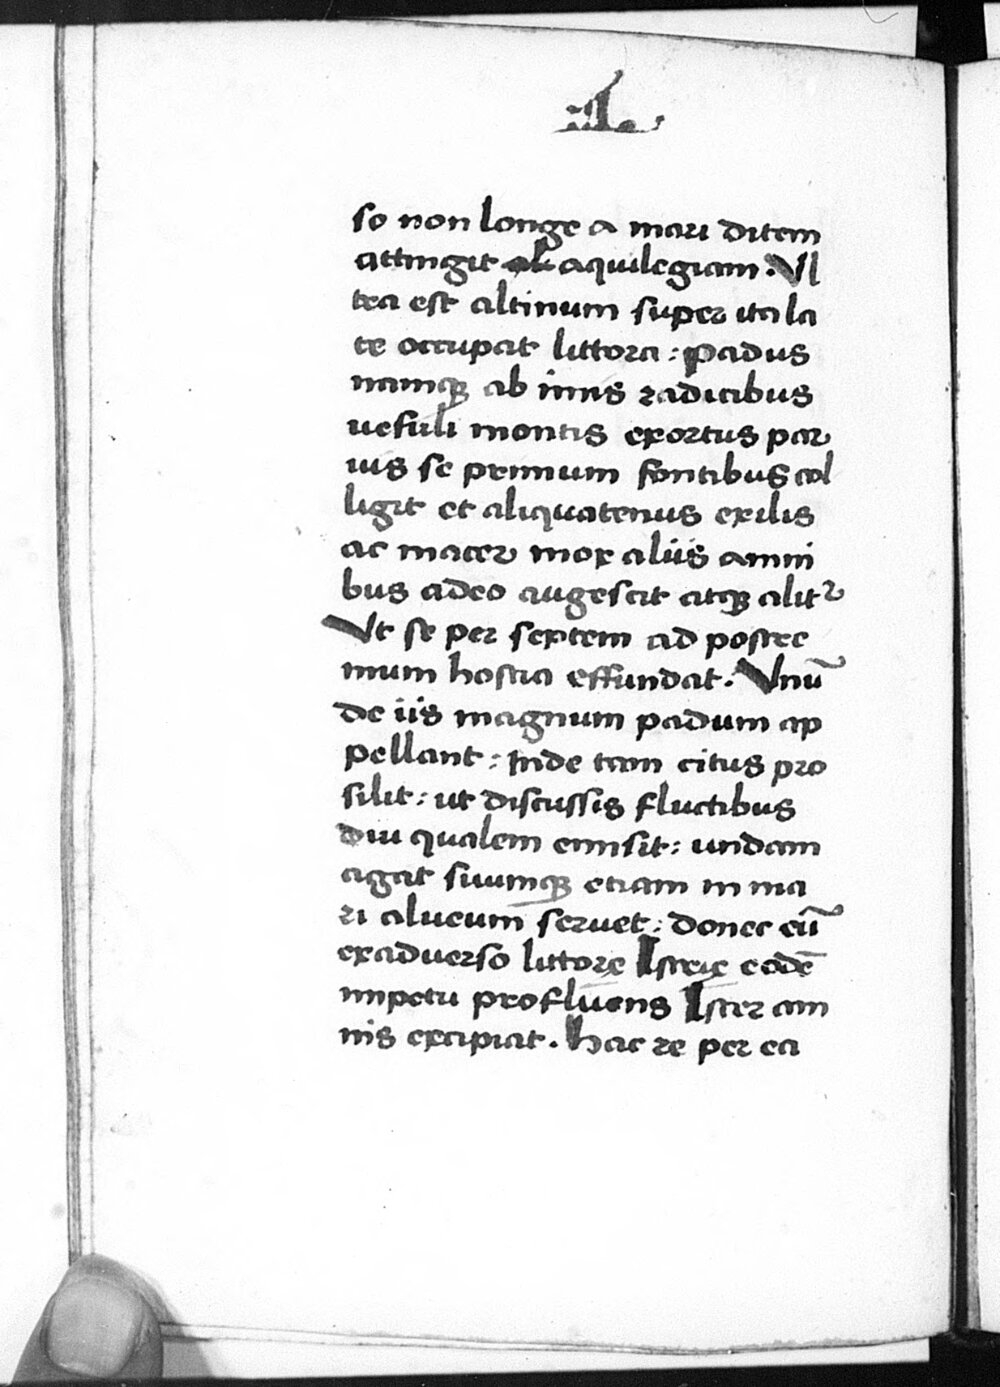 so non longe a mari ditem
attingit aquilegiam. Vl
tra est altinum super ita la
te occupat littora: padus
namqꝫ ab imis radicibus
uesuli montis exortus par
uis se primum fontibus col
ligit et aliquatenus exilis
ac macer mox aliis amni
bus adeo augescit atqꝫ alitᷣ
Vt se per septem ad postre
mum hostia effundat. Vnũ
de iis magnum padum ap
pellant: inde tam citus pro
silit: ut discussis fluctibus
diu qualem emisit: undam
agat suumqꝫ etiam in ma
ri alueum seruet: donec eũ
exaduerso littore Istrie eodẽ
impetu profluens Ister am
nis excipiat. hac re per ea